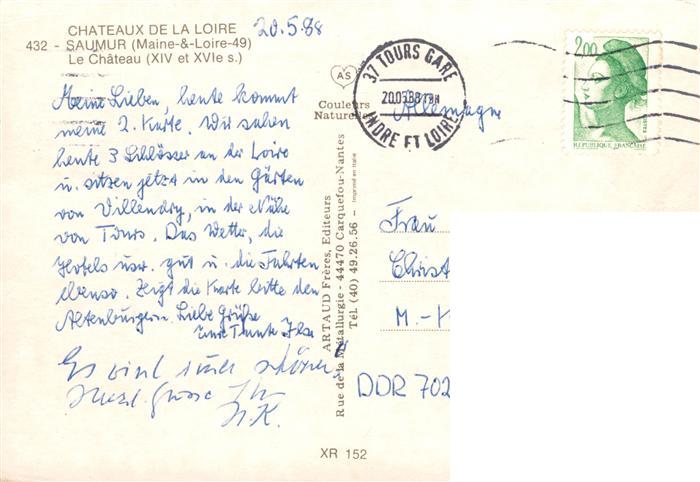 CHATEAUX DE LA LOIRE
432 - SAUMUR (Maine-&-Loire-49)
Le Château (XIV et XVIe s.)
20.5.88
Meine Lieben, heute kommt
meine 2. Karte. Wir sahen
heute 3 Schlösser an der Loire
u. sitzen jetzt in den Gärten
von Villendry, in der Nähe
von Tours. Das Wetter, die
Hotels usw. gut u. die Fahrten
ebenso. Zeigt die Karte bitte den
Altenburgern. Liebe Grüße
Eure Tante Ilse
Es wird immer schöner
Herzl. Grüsse
H.K.
AS
Couleurs
Naturelles
ARTAUD Frères, Editeurs
Rue de la Métallurgie - 44470 Carquefou-Nantes
Tél (40) 49.26.56 - Imprimé en Italie
XR 152
37 TOURS GARE
20.05.88
INDRE ET LOIRE
Allemagne
2,00
REPUBLIQUE FRANÇAISE
Frau
Christ
M.-
DDR 702